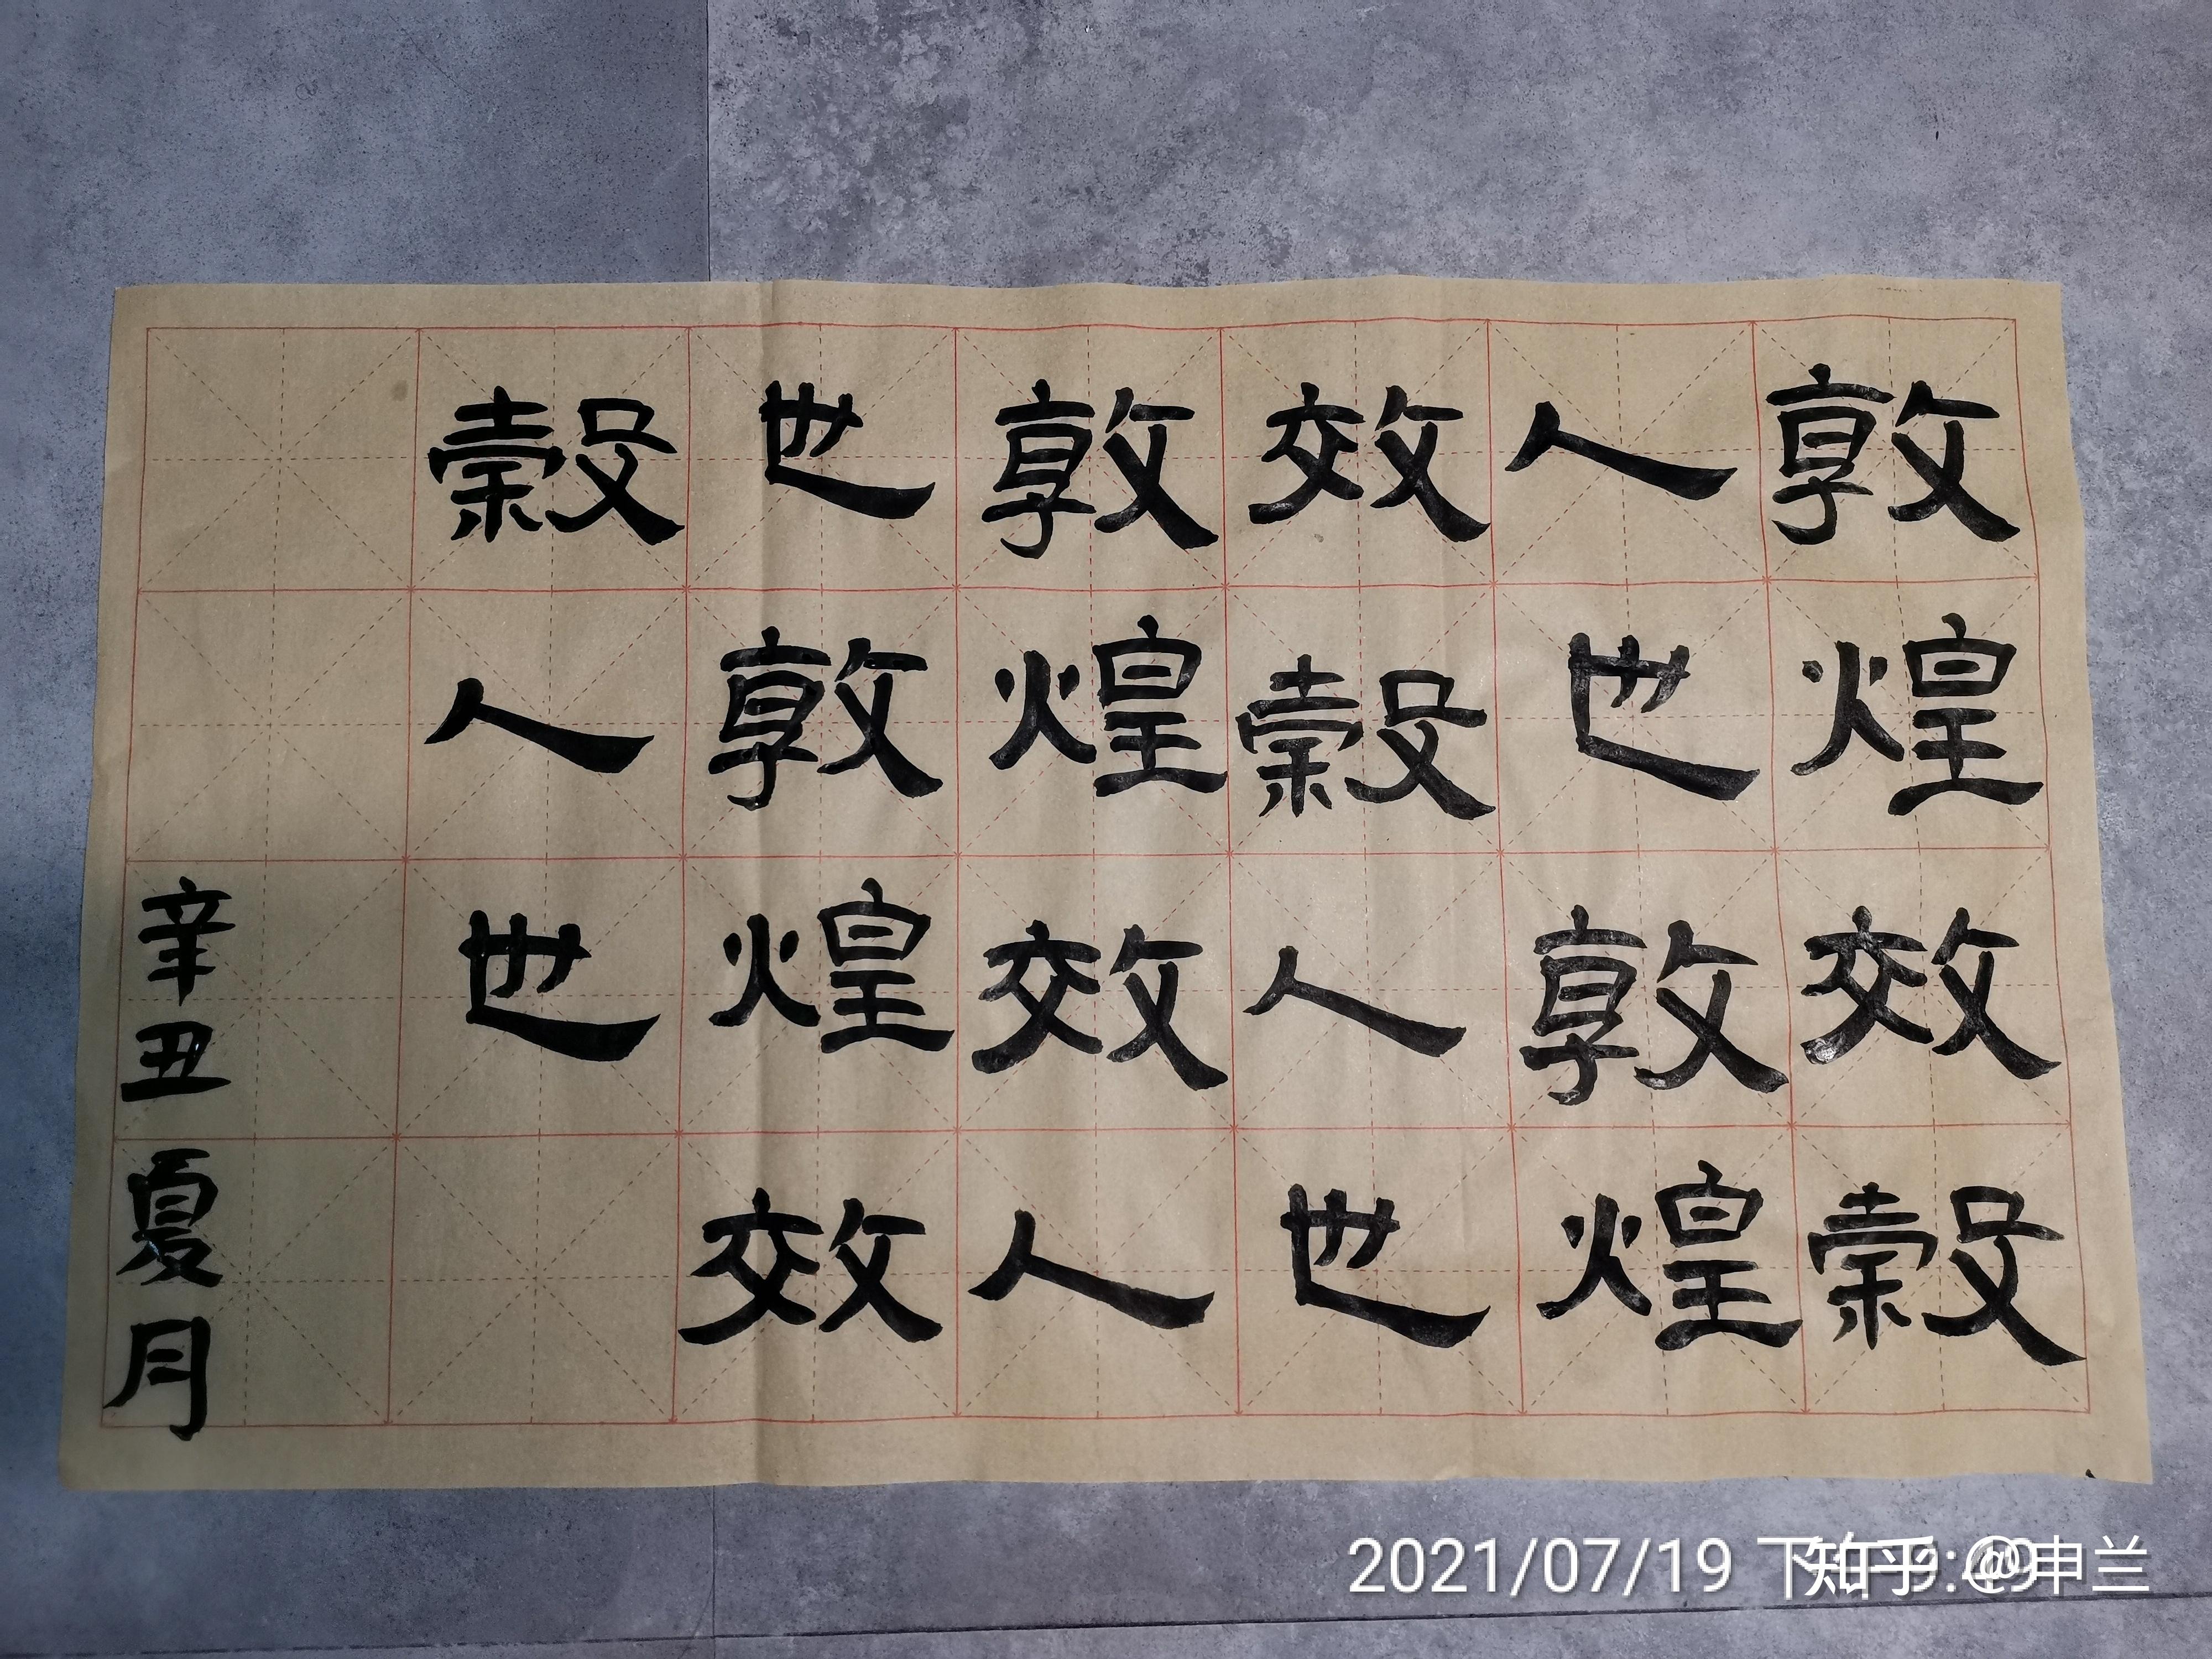 敦煌效穀
人也敦煌
效穀人也
敦煌效人
也敦煌效
穀人也
辛丑夏月
2021/07/19
知乎 @申兰